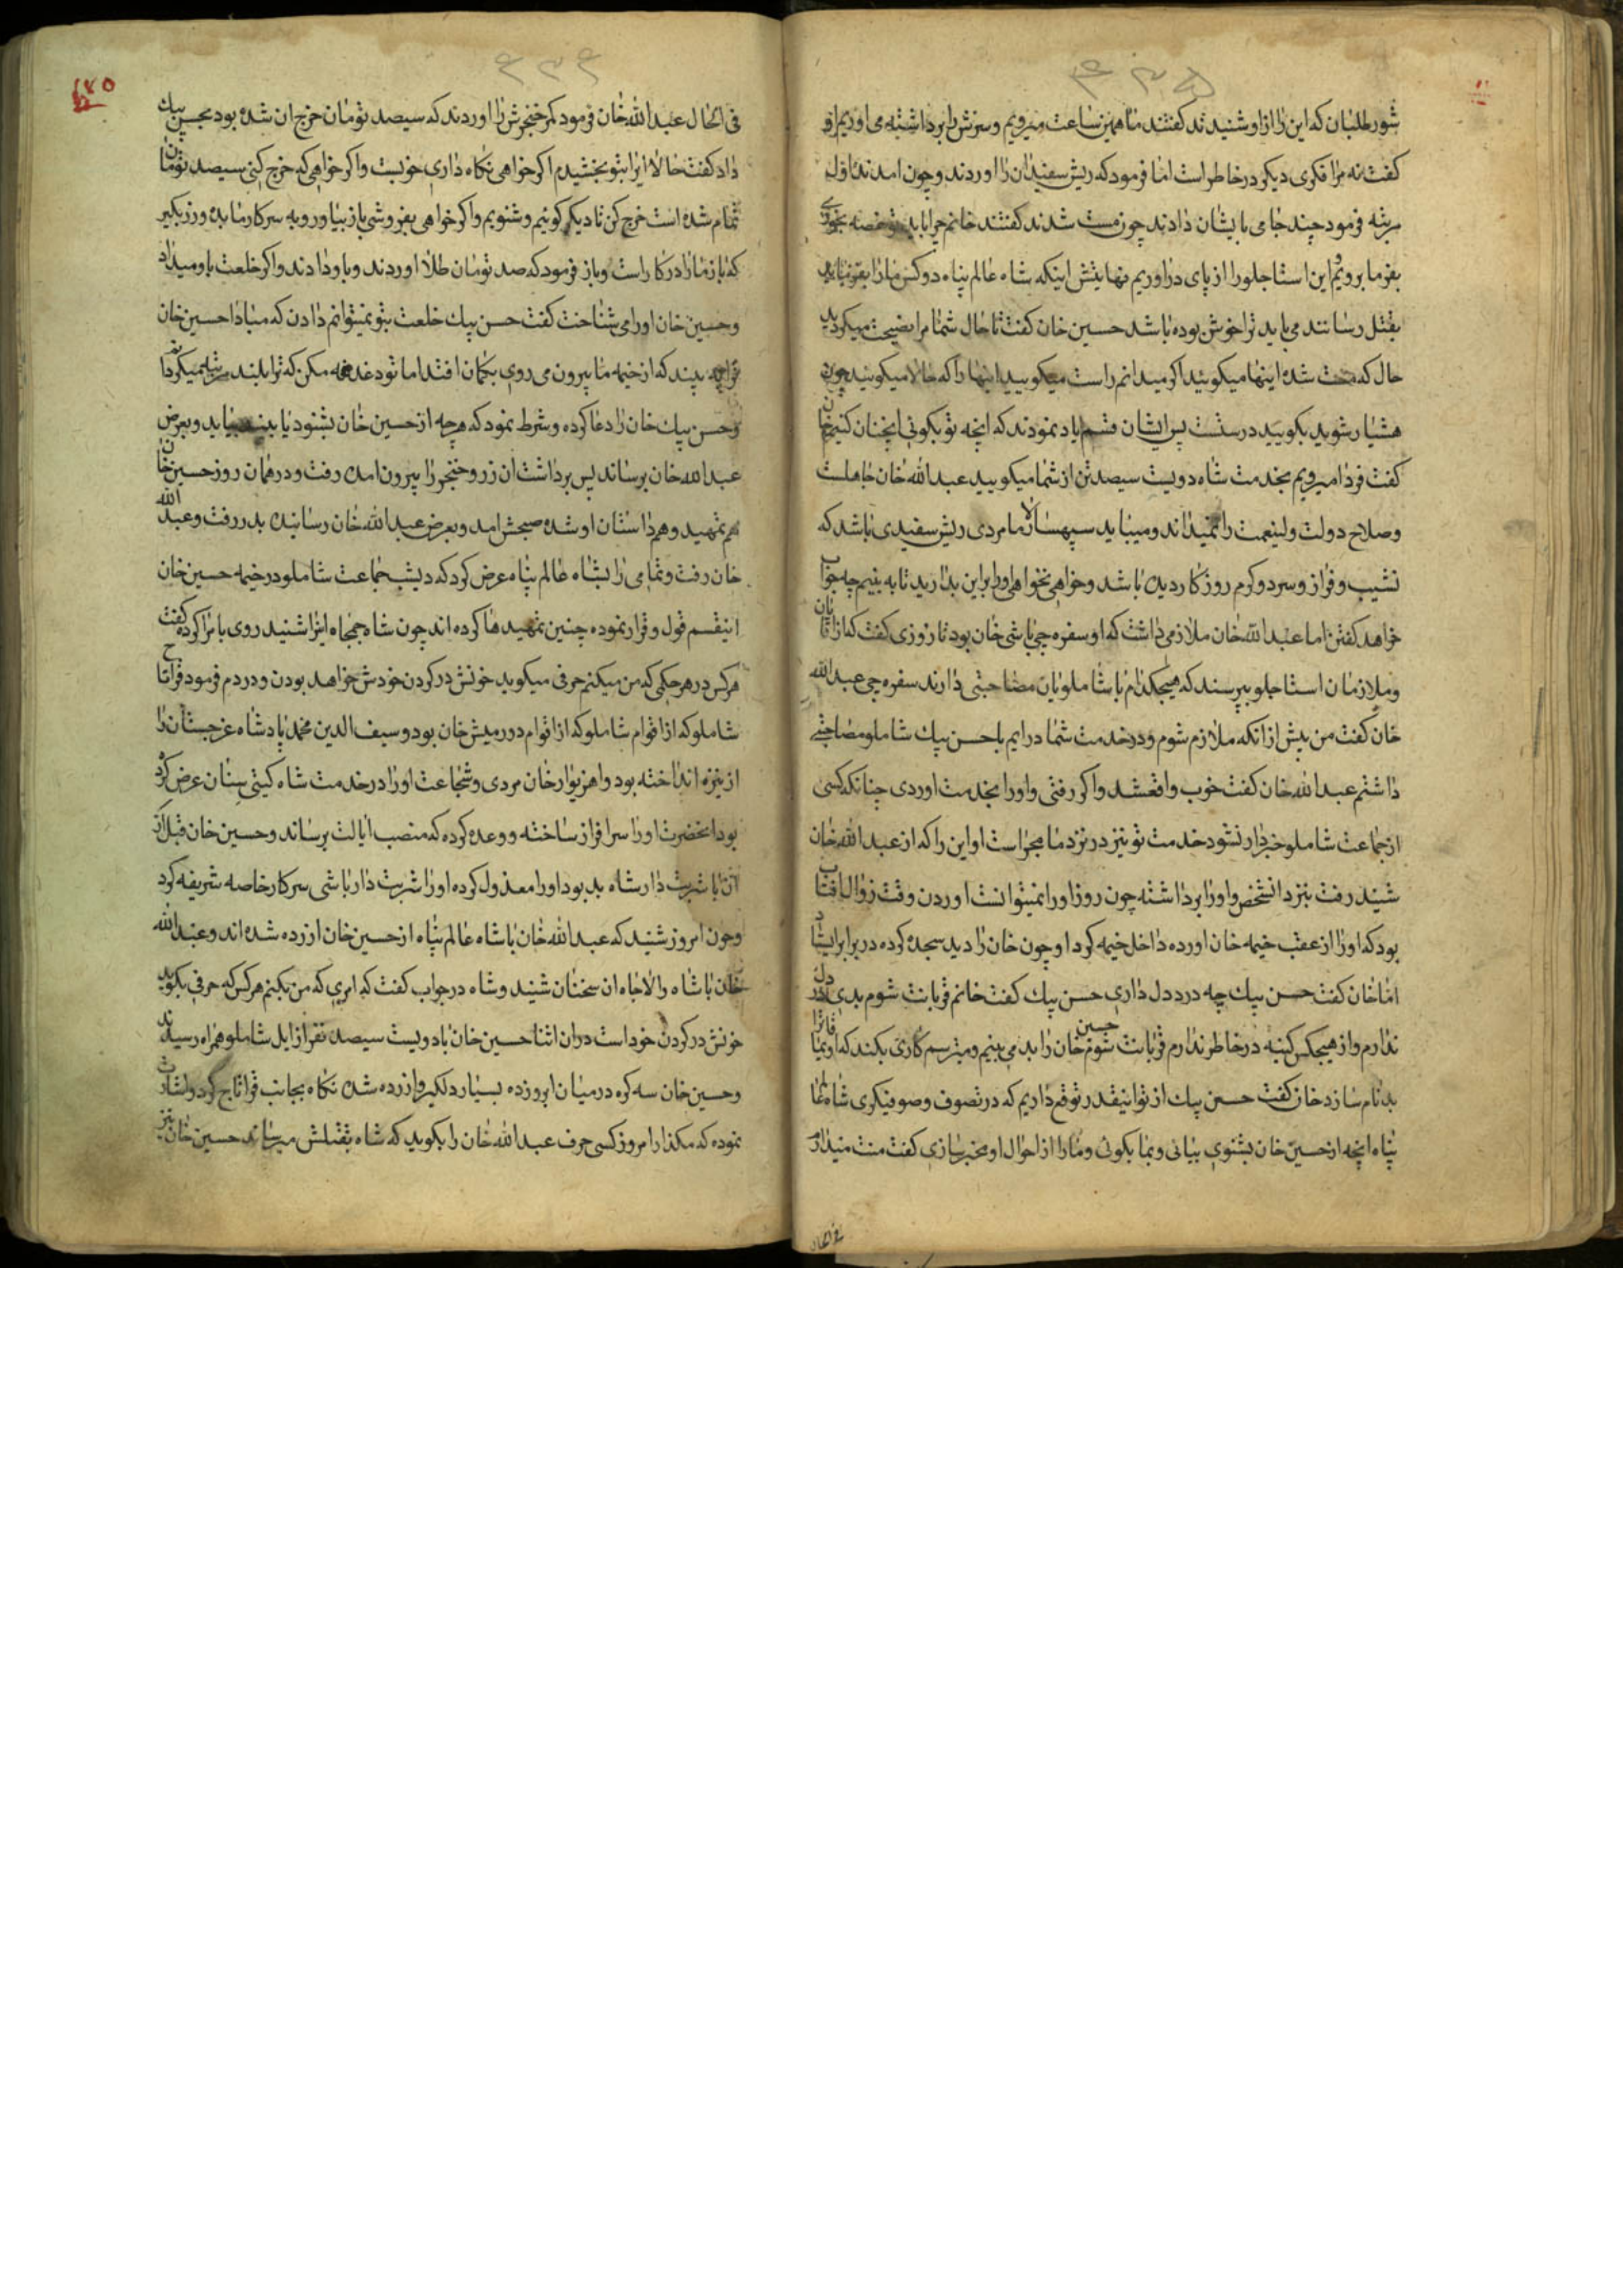 ۴۳۵
شورطلبان که این را از او شنیدند کفتند ما همین ساعت میرویم و سرش را برداشته می اوریم او
کفت نه مرا فکری دیکر در خاطر است اما فرمود که ریش سفیدان را اوردند و چون امدند اول
مرتبه فرمود چند جامی بایشان دادند چون مست شدند کفتند خانم چرا باید تو غصه بخوری
بفرما برویم این استاجلو را از پای دراوریم نهایتش اینکه شاه عالم پناه دو کس مارا
بقتل رسانند می باید ترا خوش بوده باشد حسین خان کفت تا حال شما مرا نصیحت میکردید
حال که مست شده اینها میکوئید اکر میدانم راست میکویید اینها را که حالا میکوئید چون
هشیار شوید بکویید درستست پس ایشان قسم یاد نمودند که انچه تو بکوئی انچنان کنیم خان
کفت فردا میرویم بخدمت شاه دویست سیصد تن از شما میکویید عبدالله خان جاهلست
و صلاح دولت ولینعمت را نمیداند و میباید سپهسالار ما مردی ریش سفیدی باشد که
نشیب و فراز و سرد و کرم روزکار دیده باشد و خواهی نخواهی او را براین بدارید تا به بینیم چه جواب
خواهد کفتن اما عبدالله خان ملازمی داشت که او سفره چی باشی خان بود تا روزی کفت که از اقایان
و ملازمان استاجلو بپرسند که هیچکدام با شاملویان مصاحبتی دارند سفره چی عبدالله
خان کفت من پیش از انکه ملازم شوم و در خدمت شما درایم با حسن بیک شاملو مصاحبتی
داشتم عبدالله خان کفت خوب واقعشد واکر رفتی و او را بخدمت اوردی چنانکه کسی
از جماعت شاملو خبردار نشود خدمت تو نیز در نزد ما مجراست او این را که از عبدالله خان
شنید رفت بنزد انشخص و او را برداشته چون روز او را نمیتوانست اوردن وقت زوال افتاب
بود که او را از عقب خیمه خان اورده داخل خیمه کرد او چون خان را دید سجده کرده در برابر ایستاد
اما خان کفت حسن بیک چه درد دل داری حسن بیک کفت خانم قربانت شوم بدی در دل
ندارم و از هیچکس کینه در خاطر ندارم قربانت شوم حسین خان را بد می بینم و میترسم کاری بکند که اویماقاترا
بدنام سازد خان کفت حسن بیک از تو اینقدر توقع داریم که در تصوف و صوفیکری شاه عالم
پناه انچه از حسین خان بشنوی بیائی و بما بکوئی و مارا از احوال او مخبر سازی کفت منت میدارم
فی الحال
۴۳۶
۱۴۵
فی الحال عبدالله خان فرمود کمر خنجرش را اوردند که سیصد تومان خرج ان شده بود بحسن بیک
داد کفت حالا اینرا بتو بخشیدم اکر خواهی نکاه داری خوبست واکر خواهی که خرج کنی سیصد تومان
تمام شده است خرج کن تا دیکر کوئیم و شنویم واکر خواهی بفروشی باز بیاور و به سرکار ما بده و زر بکیر
که باز مارا در کار است و باز فرمود که صد تومان طلا اوردند و باو دادند واکر خلعت باو میداد
و حسین خان اورا می شناخت کفت حسن بیک خلعت بتو نمیتوانم دادن که مبادا حسین خان
بیند که از خیمه ما بیرون می روی بکمان افتد اما تو دغدغه مکن که ترا بلند مرتبه میکردانم
و حسن بیک خان را دعا کرده و شرط نمود که هرچه از حسین خان بشنود یا بیند بیاید و بعرض
عبدالله خان برساند پس برداشت ان زر و خنجر را بیرون امده رفت و در همان روز حسین خان
هم تمهید و همداستان او شده صبحش امد و بعرض عبدالله خان رسانیده بدر رفت و عبدالله
خان رفت و تمامی را بشاه عالم پناه عرض کرد که دیشب جماعت شاملو در خیمه حسین خان
اینقسم قول و قرار نموده چنین تمهیدها کرده اند چون شاه جمجاه اینرا شنید روی بامرا کرده کفت
هرکس در هر حکمی که من میکنم حرفی میکوید خونش در کردن خودش خواهد بودن و دردم فرمود قراتاج
شاملو که از اقوام شاملو که از اقوام دورمیش خان بود و سیف الدین محمد پادشاه غرجستان را
از نیزه انداخته بود و اهزیوار خان مردی و شجاعت او را در خدمت شاه کیتی ستان عرض کرده
بود انحضرت او را سرافراز ساخته و وعده کرده که منصب ایالت برساند و حسین خان قبل از
ان با شربت دار شاه بد بود او را معذول کرده او را شربت دار باشی سرکار خاصه شریفه کرد
و چون امروز شنید که عبدالله خان با شاه عالم پناه از حسین خان ازرده شده اند و عبدالله
خان با شاه والاجاه ان سخنان شنید و شاه در جواب کفت که امری که من بکنم هرکس که حرفی بکوید
خونش در کردن خود است در ان اثنا حسین خان با دویست سیصد نفر از ایل شاملو همراه رسیدند
و حسین خان سه کره در میان ابرو زده بسیار دلکیر و ازرده شده نکاه بجانب قراتاج کرد و اشارت
نموده که مکذار امروز کسی حرف عبدالله خان را بکوید که شاه بقتلش میرساند حسین خان نیز